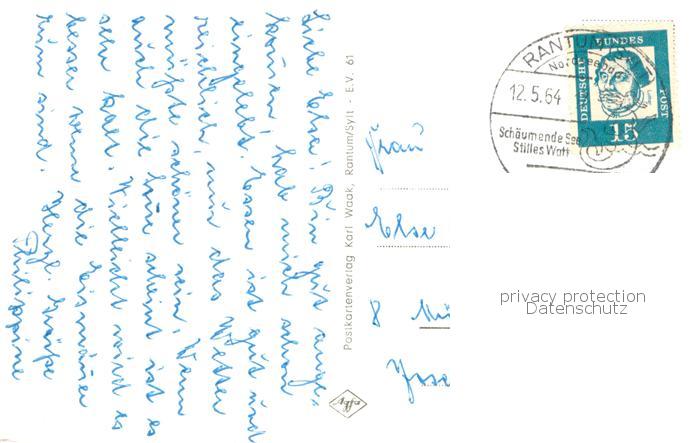 Liebe Else! Bin gut ange-
kommen, hab mich schon
eingelebt. Essen ist gut und
reichlich, nur das Wetter
müßte schöner sein. Wenn
auch die hier scheint ist es
sehr kalt. Vielleicht wird es
besser wenn die Eismänner
rum sind.
Herzl. Grüße
Philippine
Postkartenverlag Karl Waak, Rantum/Sylt - E.V. 61
Frau
Else
8 Mü
RANTUM
Nordseebad
12.5.64
Schäumende See
Stilles Watt
DEUTSCHE
BUNDES
POST
15
privacy protection
Datenschutz